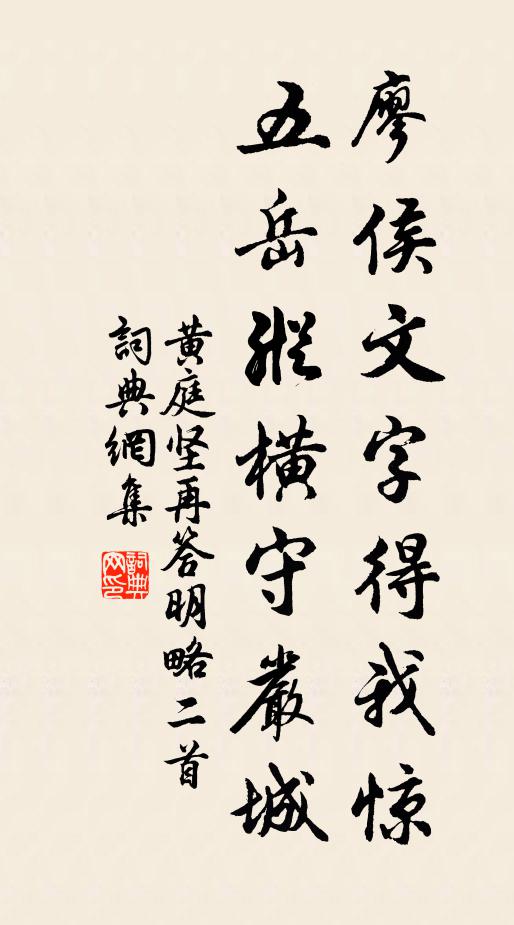 廖侯文字得我惊
五岳縱橫守嚴城
黄庭坚再答明略二首
詞典網集
詞典網印